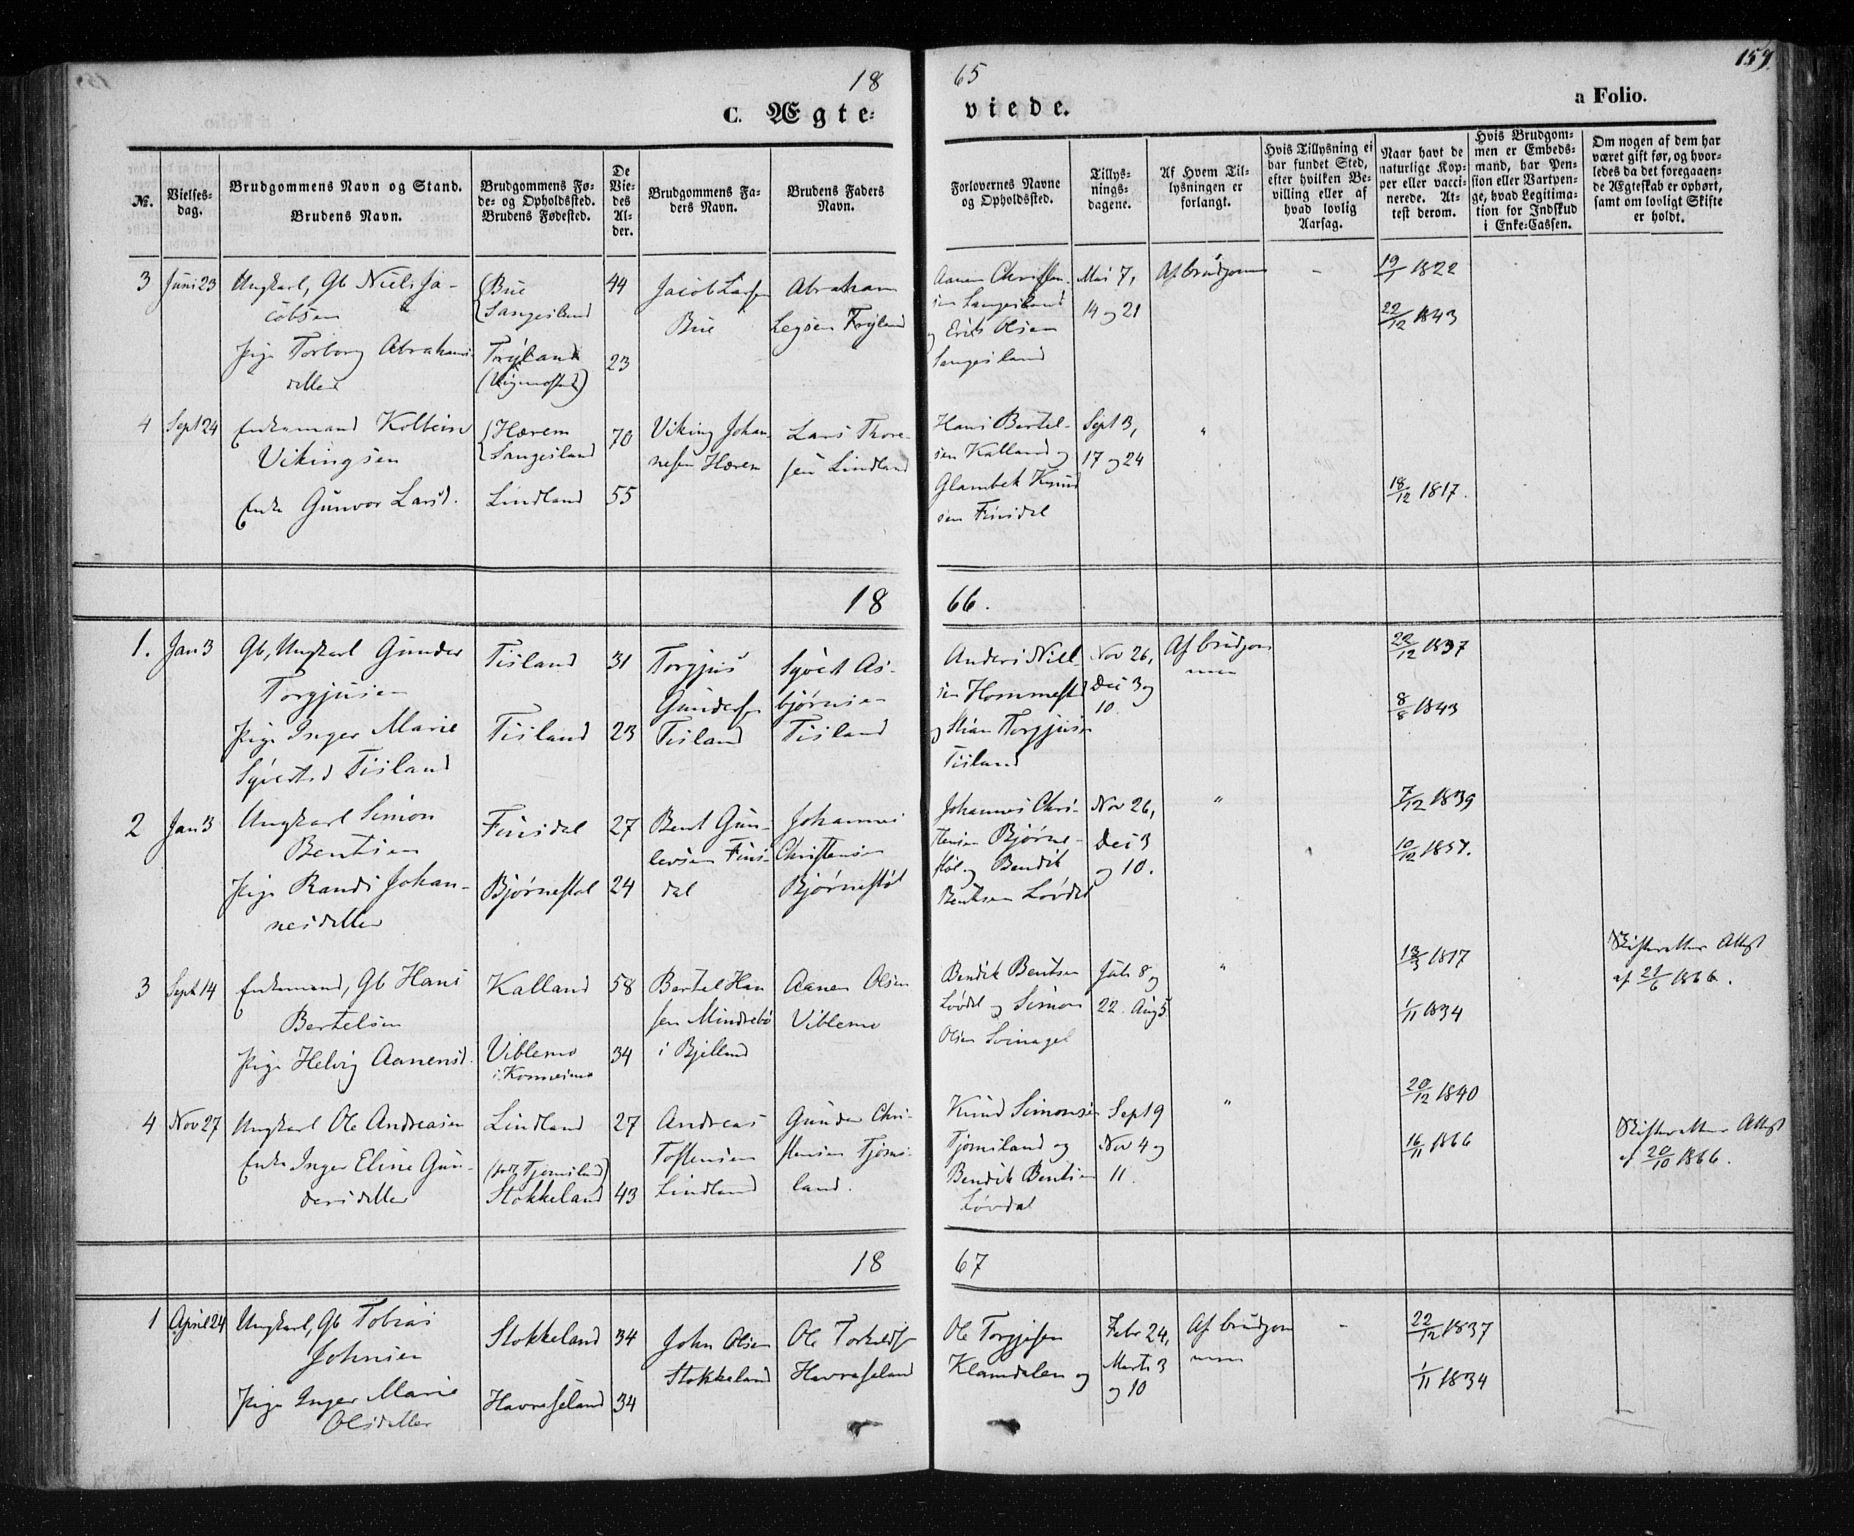 18 65 159.
C. Ægte- viede. a Folio.
№.
Vielses-
dag.
Brudgommens Navn og Stand.
Brudens Navn.
Brudgommens Fø-
de- og Opholdsted.
Brudens Fødested.
De
Vie-
des
Al-
der.
Brudgommens Fa-
ders Navn.
Brudens Faders
Navn.
Forlovernes Navne
og Opholdsted.
Tillys-
nings-
dagene.
Af Hvem Til-
lysningen er
forlangt.
Hvis Tillysning ei
har fundet Sted,
efter hvilken Be-
villing eller af
hvad lovlig
Aarsag.
Naar havt de
naturlige Kop-
per eller vacci-
nerede. At-
test derom.
Hvis Brudgom-
men er Embeds-
mand, har Pen-
sion eller Vartpen-
ge, hvad Legitima-
tion for Indskud
i Enke-Cassen.
Om nogen af dem har
været gift før, og hvor-
ledes da det foregaaen-
de Ægteskab er ophørt,
samt om lovligt Skifte
er holdt.
3
Juni 23
Ungkarl, Gb Niels Ja-
cobsen
Pige Torborg Abrahams-
datter
Bue
Sangesland
Trýland
(Vigmostad)
44
23
Jacob Larsen
Bue
Abraham
Trýland
Aanen Christen-
sen Sangesland
og Erik Olsen
Sangesland
Mai 7,
14 og 21
Af brudgom
-
19/1 1822
22/12 1843
4
Sept 24
Enkemand Kolbein
Vikingsen
Enke Gunvor Larsd.
Hærem
Sangesland
Lindland
70
55
Viking Johan-
nesen Hærem
Lars Thore-
sen Lindland
Hans Bertel-
sen Kalland og
Glambek Knud-
sen Finsdal
Sept 3,
17 og 24
"
18/12 1817.
18 66.
1.
Jan 3
Gb, Ungkarl Gunder
Torgjusen
Pige Inger Marie
Syvertsd Tisland
Tisland
Tisland
31
23
Torgjus
Gundersen
Tisland
Syvert As-
bjørnsen
Tisland
Anders Niel-
sen Hommestad
og Stian Torgjusen
Tisland
Nov 26,
Dec 3 og
10.
Af brudgom
men
22/12 1837
8/8 1843
2
Jan 3
Ungkarl Simon
Bentsen
Pige Randi Johan-
nesdatter
Finsdal
Bjørnestøl
27
24
Bent Gun-
levsen Fins-
dal
Johannes
Christensen
Bjørnestøl
Johannes Chri-
stensen Bjørne-
støl og Bendik
Bentsen Løvdal
Nov 26,
Dec 3
og 10.
"
7/12 1839
10/12 1857.
3
Sept 14
Enkemand, Gb Hans
Bertelsen
Pige Helvig Aanensd.
Kalland
Viblemo
i Konsmo
58
34
Bertel Han-
sen Mindrebø
i Bjelland
Aanen Olsen
Viblemo
Bendik Bentsen
Løvdal og Simon
Olsen Svinagel
Juli 8 og
22. Aug 5
"
13/3 1817
1/11 1834
Skifteretten Attest
af 21/6 1866.
4
Nov 27
Ungkarl Ole Andreasen
Enke Inger Eline Gun-
dersdatter
Lindland
Tjomsland
Stokkeland
27
43
Andreas
Tostensen
Lindland
Gunder Chri-
stensen Tjoms-
land.
Knud Simonsen
Tjomsland og
Bendik Bentsen
Løvdal
Sept 9
Nov 4 og
11.
"
20/12 1840
16/11 1866
Skifteretten Attest
af 20/10 1866.
18 67
1
April 24
Ungkarl, Gb Tobias
Johnsen
Pige Inger Marie
Olsdatter
Stokkeland
Havraseland
34
34
John Olsen
Stokkeland
Ole Torkilds
Havraseland
Ole Torgjusen
Klamdalen og
Febr 24,
Marts 3
og 10
Af brudgom
men
-
22/12 1837
1/11 1834